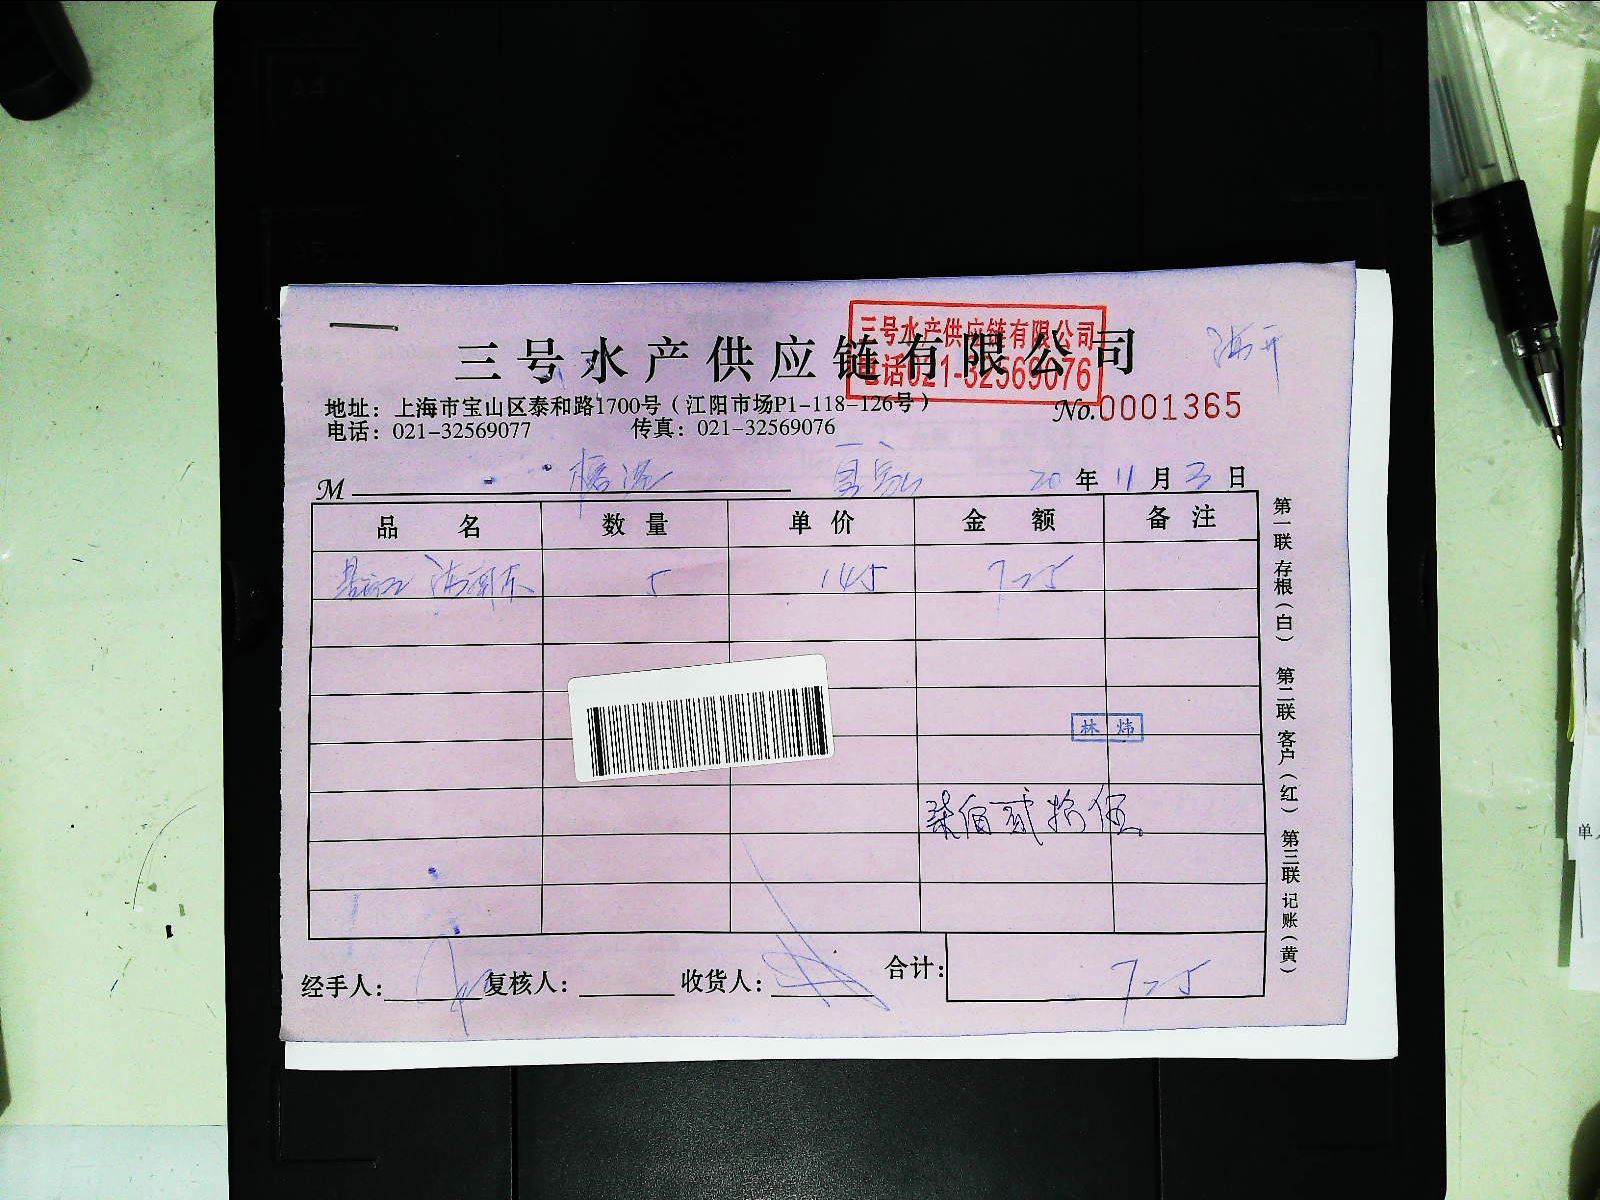 三号水产供应链有限公司
三号水产供应链有限公司
电话021-32569076
地址：上海市宝山区泰和路1700号（江阳市场P1-118-126号）
No.0001365
电话：021-32569077 传真：021-32569076
M 20年11月3日
品名 数量 单价 金额 备注
5 145 725
林炜
柒佰贰拾伍
经手人： 复核人： 收货人： 合计： 725
第一联 存根（白） 第二联 客户（红） 第三联 记账（黄）